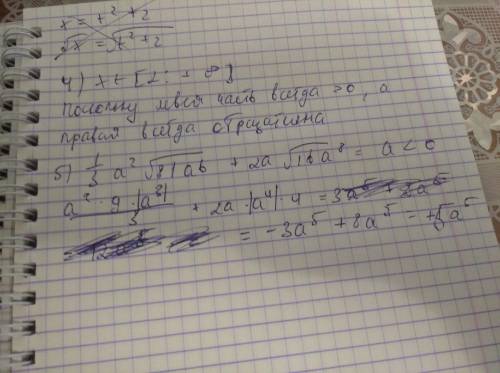 x = t² + 2
√x = √t² + 2
4) x ∈ [2; + ∞]
Поскольку левая часть всегда >0, а
правая всегда отрицательна
5) 1/3 a² √81a⁶ + 2a √16a⁸ = a < 0
a² · 9 · |a³| / 3 + 2a · |a⁴| · 4 = 3a⁵ + 8a⁵
= -3a⁵ + 8a⁵ = +5a⁵